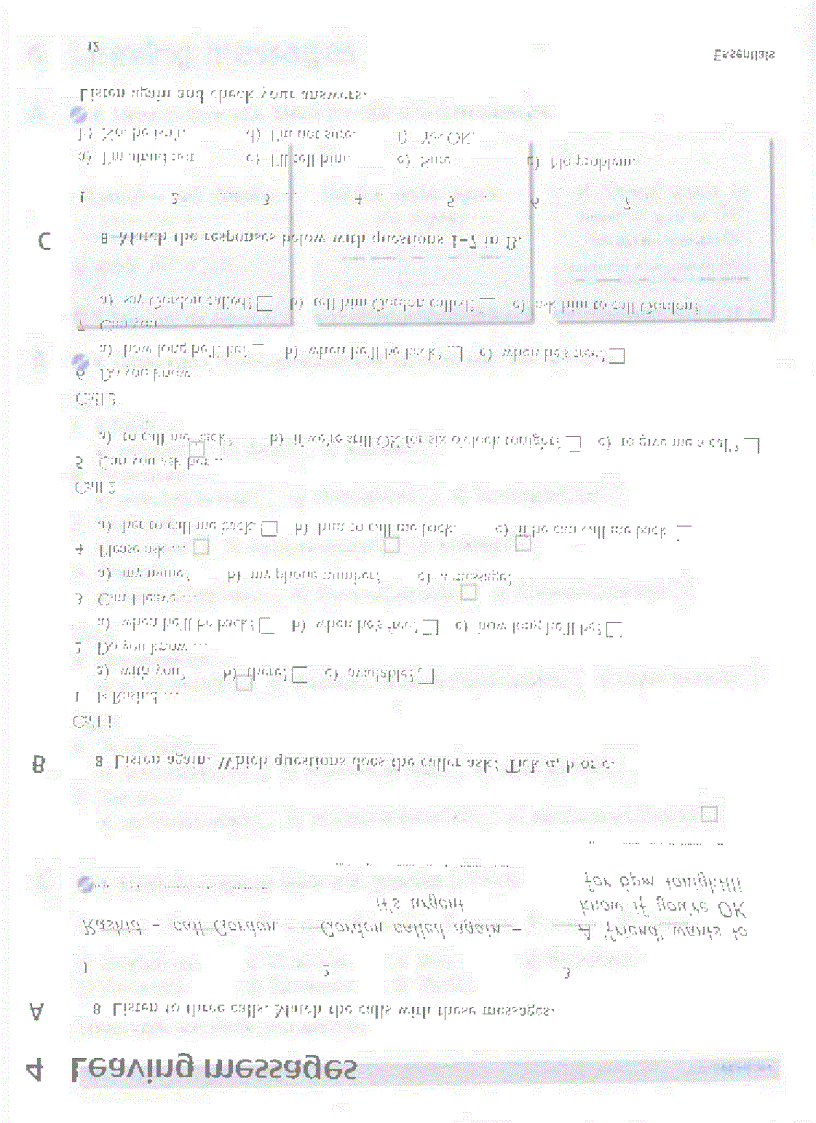 4 Leaving messages
A 8 Listen to three calls. Match the calls with these messages.
1 2 3
Rashid – call Gordon
Gordon called again –
it's urgent
A 'friend' wants to
know if you're OK
for 6pm tonight!!!
B 8 Listen again. Which questions does the caller ask? Tick a, b or c.
Call 1
1 Is Rashid ...
a) with you? b) there? c) available?
2 Do you know ...
a) when he'll be back? b) when he's free? c) how long he'll be?
3 Can I leave ...
a) my name? b) my phone number? c) a message?
4 Please ask ...
a) her to call me back. b) him to call me back. c) if he can call me back.
Call 2
5 Can you ask her ...
a) to call me back? b) if we're still OK for six o'clock tonight? c) to give me a call?
Call 3
6 Do you know ...
a) how long he'll be? b) when he'll be back? c) when he's free?
7 Can you ...
a) say Gordon called? b) tell him Gordon called? c) ask him to call Gordon?
C 8 Match the responses below with questions 1–7 in B.
1 2 3 4 5 6 7
a) I'm afraid not. c) I'll tell him. e) Sure. g) No problem.
b) No, he isn't. d) I'm not sure. f) Yes OK.
Listen again and check your answers.
12 Essentials